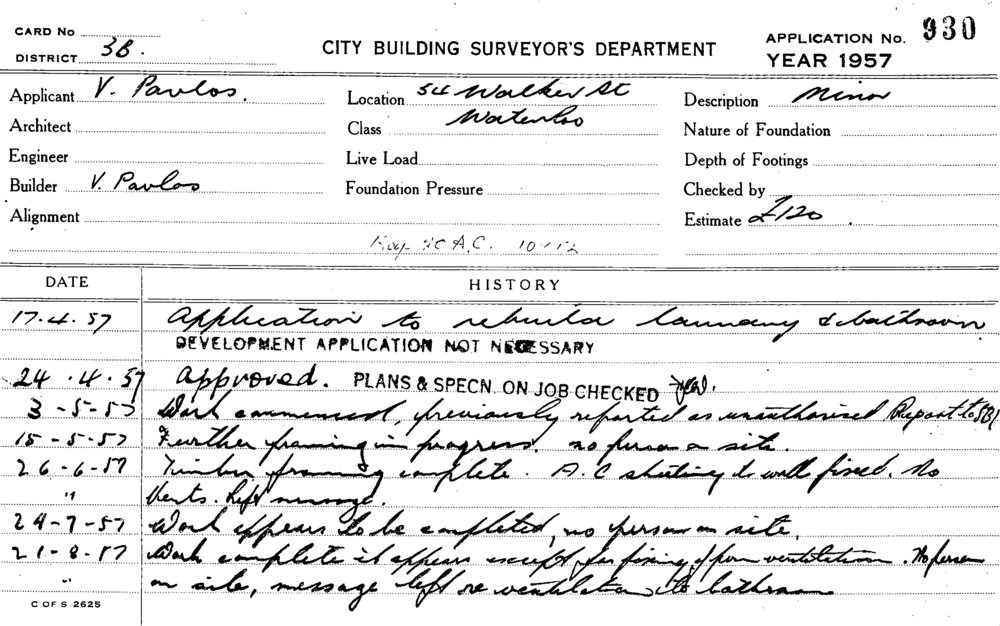 CARD No
DISTRICT 3B.
CITY BUILDING SURVEYOR'S DEPARTMENT
APPLICATION No. 930
YEAR 1957
Applicant V. Pavlos.
Location 54 Walker St
Description Minor
Architect
Class Waterloo
Nature of Foundation
Engineer
Live Load
Depth of Footings
Builder V. Pavlos
Foundation Pressure
Checked by
Alignment
Estimate £120.
A.C.
DATE
HISTORY
17.4.57 Application to rebuild laundry & bathroom
DEVELOPMENT APPLICATION NOT NECESSARY
24.4.57 Approved. PLANS & SPECN. ON JOB CHECKED
3-5-57 Work commenced, previously reported as unauthorised
15-5-57 Further framing in progress. no person on site.
26-6-57 Timber framing complete. A.C sheeting to walls fixed. No
" Vents. Left message.
24-7-57 Work appears to be completed, no person on site.
21-8-57 Work complete it appears except for fixing upon ventilation. No person
" on site, message left re ventilation to bathroom
C OF S 2625